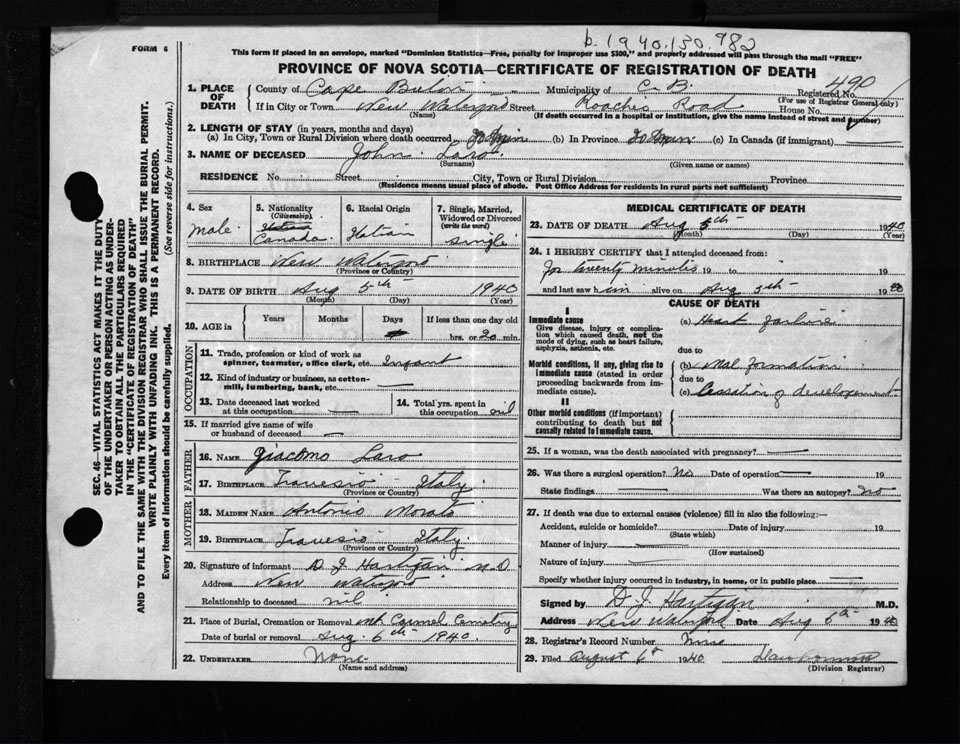 b. 1940.130.982
FORM 6
This form if placed in an envelope, marked "Dominion Statistics—Free, penalty for improper use $300," and properly addressed will pass through the mail "FREE"
PROVINCE OF NOVA SCOTIA—CERTIFICATE OF REGISTRATION OF DEATH
490
1. PLACE OF DEATH
County of Cape Breton Municipality of C. B. Registered No.
(For use of Registrar General only)
If in City or Town New Waterford Street Roaches Road House No.
(Name) (If death occurred in a hospital or institution, give the name instead of street and number)
2. LENGTH OF STAY (in years, months and days)
(a) In City, Town or Rural Division where death occurred 20 min (b) In Province 20 min (c) In Canada (if immigrant)
3. NAME OF DECEASED John Laro
(Surname) (Given name or names)
RESIDENCE No. Street City, Town or Rural Division Province
(Residence means usual place of abode. Post Office Address for residents in rural parts not sufficient)
4. Sex
male.
5. Nationality (Citizenship)
Canada.
6. Racial Origin
Italian
7. Single, Married, Widowed or Divorced (write the word)
single
8. BIRTHPLACE New Waterford
(Province or Country)
9. DATE OF BIRTH Aug 5th 1940
(Month) (Day) (Year)
10. AGE in
Years Months Days If less than one day old
hrs. or 20 min.
OCCUPATION
11. Trade, profession or kind of work as spinner, teamster, office clerk, etc. Infant
12. Kind of industry or business, as cotton-mill, lumbering, bank, etc.
13. Date deceased last worked at this occupation
14. Total yrs. spent in this occupation nil
15. If married give name of wife or husband of deceased
FATHER
16. NAME Giacomo Laro
17. BIRTHPLACE Travesio Italy
(Province or Country)
MOTHER
18. MAIDEN NAME Antonio Morato
19. BIRTHPLACE Travesio Italy.
(Province or Country)
20. Signature of informant D J Hartigan M.D
Address New Waterford
Relationship to deceased nil
21. Place of Burial, Cremation or Removal Mt Carmel Cemetry
Date of burial or removal Aug 6th 1940.
22. UNDERTAKER None.
(Name and address)
MEDICAL CERTIFICATE OF DEATH
23. DATE OF DEATH Aug 5th 1940
(Month) (Day) (Year)
24. I HEREBY CERTIFY that I attended deceased from:
for twenty minutes 19 to 19
and last saw him alive on Aug 5th 1940
CAUSE OF DEATH
I
Immediate cause
Give disease, injury or complication which caused death, not the mode of dying, such as heart failure, asphyxia, asthenia, etc.
(a) Heart failure
due to
Morbid conditions, if any, giving rise to immediate cause (stated in order proceeding backwards from immediate cause).
(b) Mal formation
due to
(c) Cessation of development.
II
Other morbid conditions (if important) contributing to death but not causally related to immediate cause.
25. If a woman, was the death associated with pregnancy?
26. Was there a surgical operation? No Date of operation 19
State findings Was there an autopsy? No
27. If death was due to external causes (violence) fill in also the following:—
Accident, suicide or homicide? Date of injury 19
(State which)
Manner of injury
(How sustained)
Nature of injury
Specify whether injury occurred in industry, in home, or in public place
Signed by D. J. Hartigan M.D.
Address New Waterford Date Aug 5th 1940
28. Registrar's Record Number Nine
29. Filed August 6th 1940
(Division Registrar)
SEC. 46—VITAL STATISTICS ACT MAKES IT THE DUTY
OF THE UNDERTAKER OR PERSON ACTING AS UNDER-
TAKER TO OBTAIN ALL THE PARTICULARS REQUIRED
IN THE "CERTIFICATE OF REGISTRATION OF DEATH"
AND TO FILE THE SAME WITH THE DIVISION REGISTRAR WHO SHALL ISSUE THE BURIAL PERMIT.
WRITE PLAINLY WITH UNFADING INK. THIS IS A PERMANENT RECORD.
Every item of information should be carefully supplied. (See reverse side for instructions.)